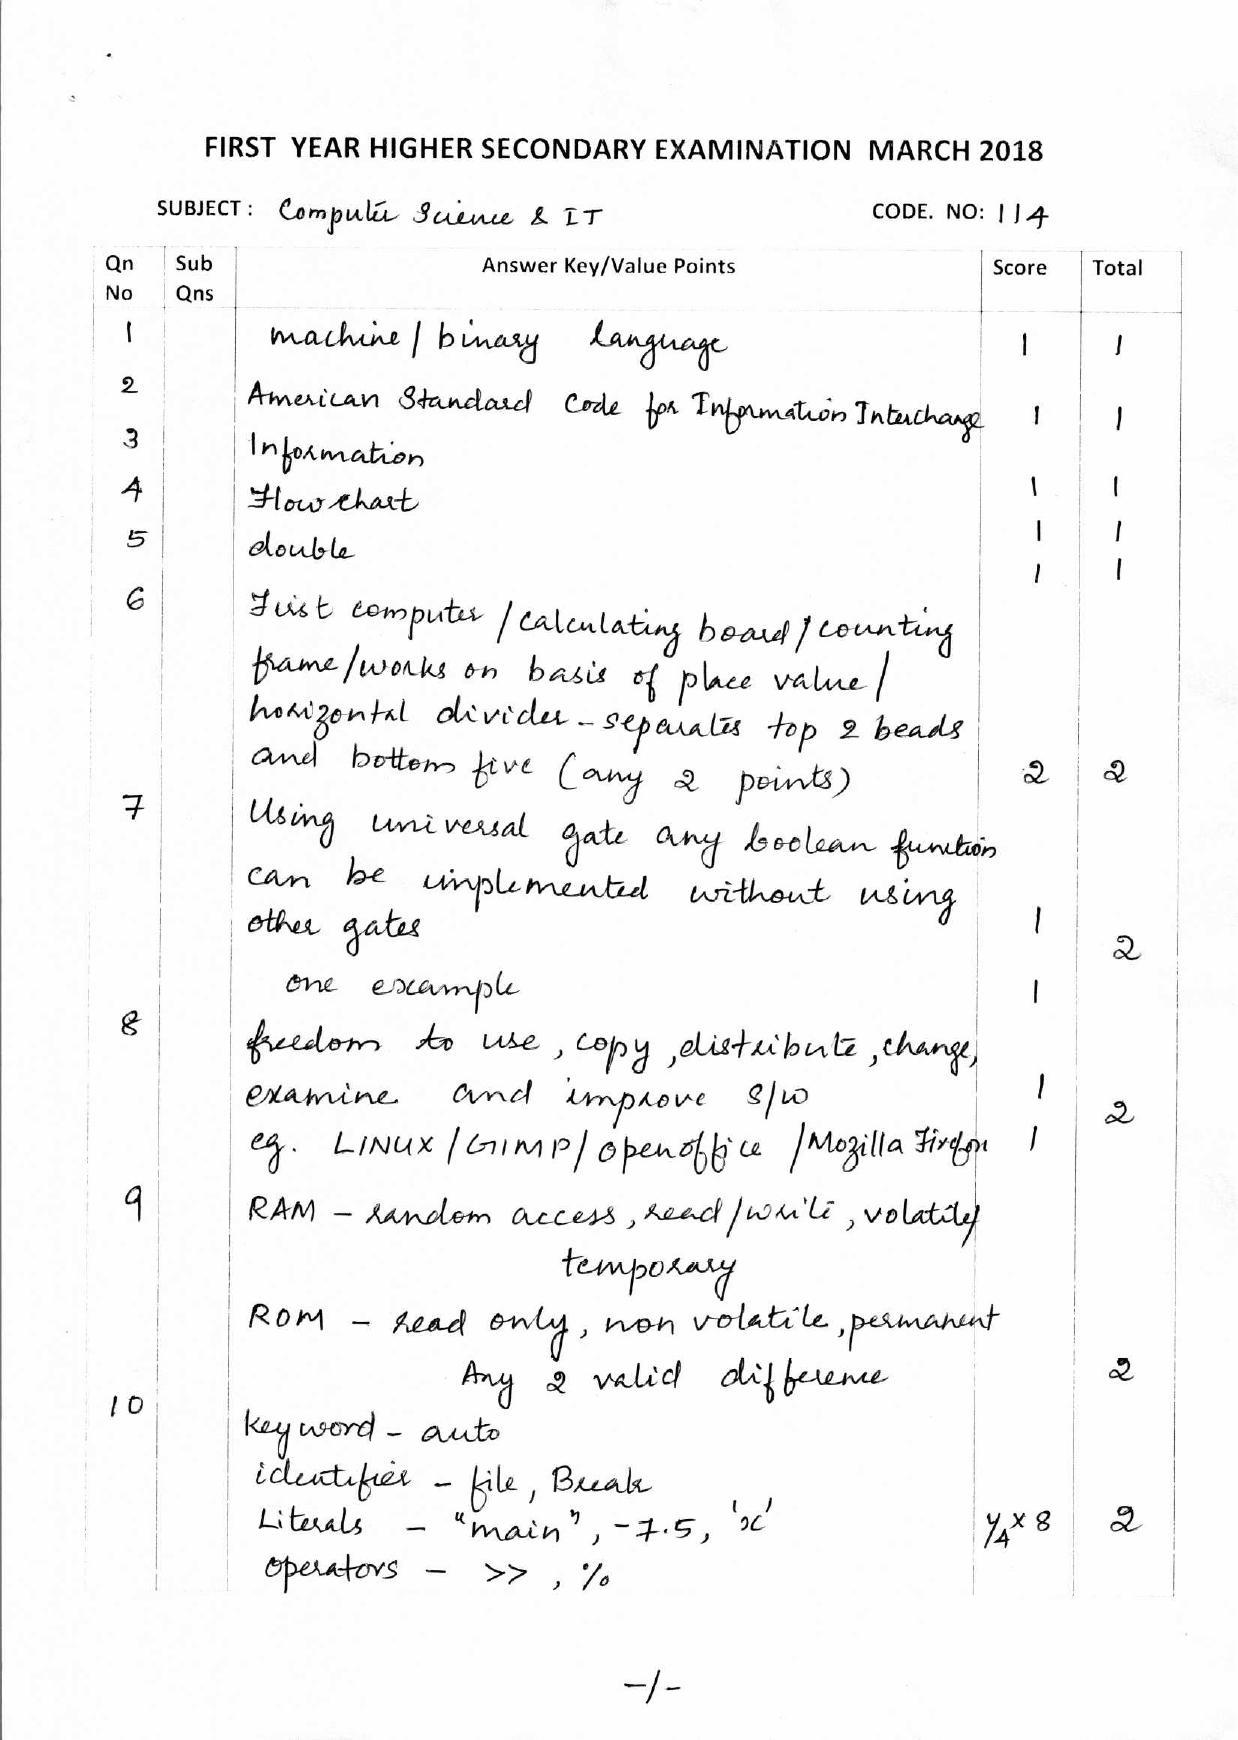 FIRST YEAR HIGHER SECONDARY EXAMINATION MARCH 2018
SUBJECT : Computer Science & IT CODE. NO: 114
Qn No Sub Qns Answer Key/Value Points Score Total
1 machine / binary language 1 1
2 American Standard Code for Information Interchange 1 1
3 Information 1 1
4 Flow chart 1 1
5 double 1 1
6 First computer / calculating board / counting
frame / works on basis of place value /
horizontal divider - separates top 2 beads
and bottom five (any 2 points) 2 2
7 Using universal gate any boolean function
can be implemented without using
other gates 1
2
one example 1
8 freedom to use , copy , distribute , change,
examine and improve S/W 1
2
eg. LINUX / GIMP / openoffice / Mozilla Firefox 1
9 RAM - random access , read / write , volatile/
temporary
ROM - read only , non volatile , permanent
Any 2 valid difference 2
10 keyword - auto
identifier - file , Break
Literals - "main" , -7.5, 'x' 1/4 x 8 2
operators - >> , %
-/-